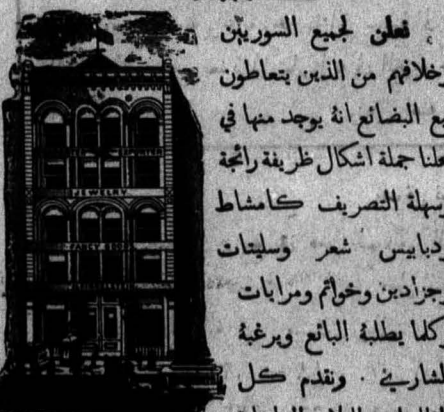 نعلن لجميع السوريين
وخلافهم من الذين يتعاطون
بيع البضائع انهُ يوجد منها في
محلنا جملة اشكال ظريفة رائجة
سهلة التصريف كامشاط
ودبابيس شعر وسليتات
وجزادين وخواتم ومرايات
وكلما يطلبهُ البائع ويرغبهُ
الشاري . ونقدم كل
JEWELRY
FANCY GOODS